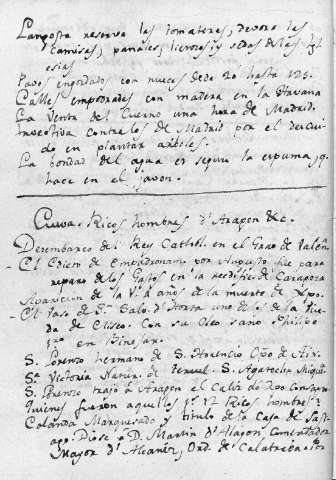 Langosta reserva las tomateras, devora las
camisas, panales, lienzos, y sedas de las Igle
sias
Pavos engordados con nueces desde 20 hasta 125.
Calles empedradas con madera en la Havana
La Venta del Cuerno una hora de Madrid.
Invectiva contra los de Madrid por el descui
do en plantar arboles.
La bondad del agua es segun la espuma, q
hace en el javon.
Cueva. Ricos hombres d'Aragon &c.
Desembarco del Rey Cathol. en el Grao de Valen
El Edicto de Empadronam. por Augusto fue para
reparo de los Gastos en la reedific. de Zaragoza
Aparicion de la V. a años de la muerte de Xpo.
El Vaso de Sn. Salv. d'Horta uno de la
da de Eliseo. Con su Oleo sano Philipo
en Binefar.
S. Lorenzo hermano de S. Orencio Opo de Aux.
Sta. Victoria Natur. de Teruel. S. Agatocha
S. Lorenzo trajo à Aragon el Caliz
Quienes fueron aquellos 12 Ricos hombres
Calanda Marquesado y titulo de la Casa de Sast
ago. Diose a D. Martin d'Alagon Comendador
Mayor d'Alcañiz, Ord. de Calatrava